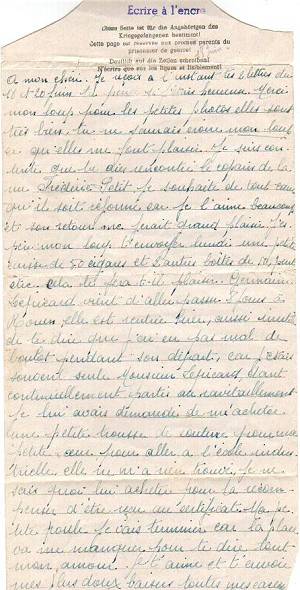 Ecrire à l'encre
(Diese Seite ist für die Angehörigen des
Kriegsgefangenen bestimmt!
Cette page est réservée aux proches parents du
prisonnier de guerre!
Deutlich auf die Zeilen schreiben!
N'écrire que sur les lignes et lisiblement!
a mon chéri. Je reçois à l'instant tes 2 lettres du
et 20 juin. heureuse. Merci
mon loup pour les petites photos elles sont
très bien. tu ne saurais croire mon loup
ce qu'elles me font plaisir. Je suis con-
tente que tu aies rencontré le copain de la
rue Frédéric Petit. Je souhaite de tout cœur
qu'il soit réformé car je l'aime beaucoup
et son retour me ferait grand plaisir. J'es-
père mon loup t'envoyer lundi une petite
caisse de 50 cigares et 2 autres boîtes de 10, peut
être cela te fera t-il plaisir. Germaine
Lepicard vient d'aller passer jours à
Rouen, elle est rentrée hier, aussi inutile
de te dire que j'ai eu pas mal de
boulot pendant son départ, car j'étais
souvent seule Monsieur Lepicard étant
continuellement parti au ravitaillement
Je lui avais demandé de m'acheter
une petite trousse de couture pour ma
petite sœur pour aller à l'école indus-
trielle, elle ne m'a rien trouvé, je ne
sais quoi lui acheter pour la récom-
penser d'être reçu au certificat. Ma pe-
tite poule je vais terminer car la place
va me manquer pour te dire tout
mon amour. Je t'aime et t'envoie
mes plus doux baisers toutes mes caresses